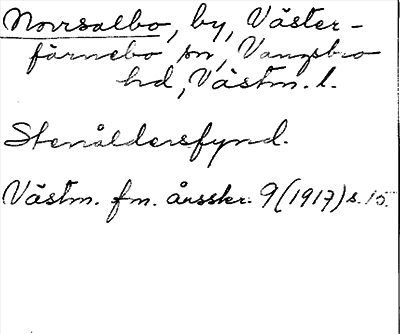 Norrsalbo, by, Väster-
färnebo sn, Vangsbro
hd, Västm. l.
Stenåldersfynd.
Västm. fm. årsskr. 9 (1917) s. 15.